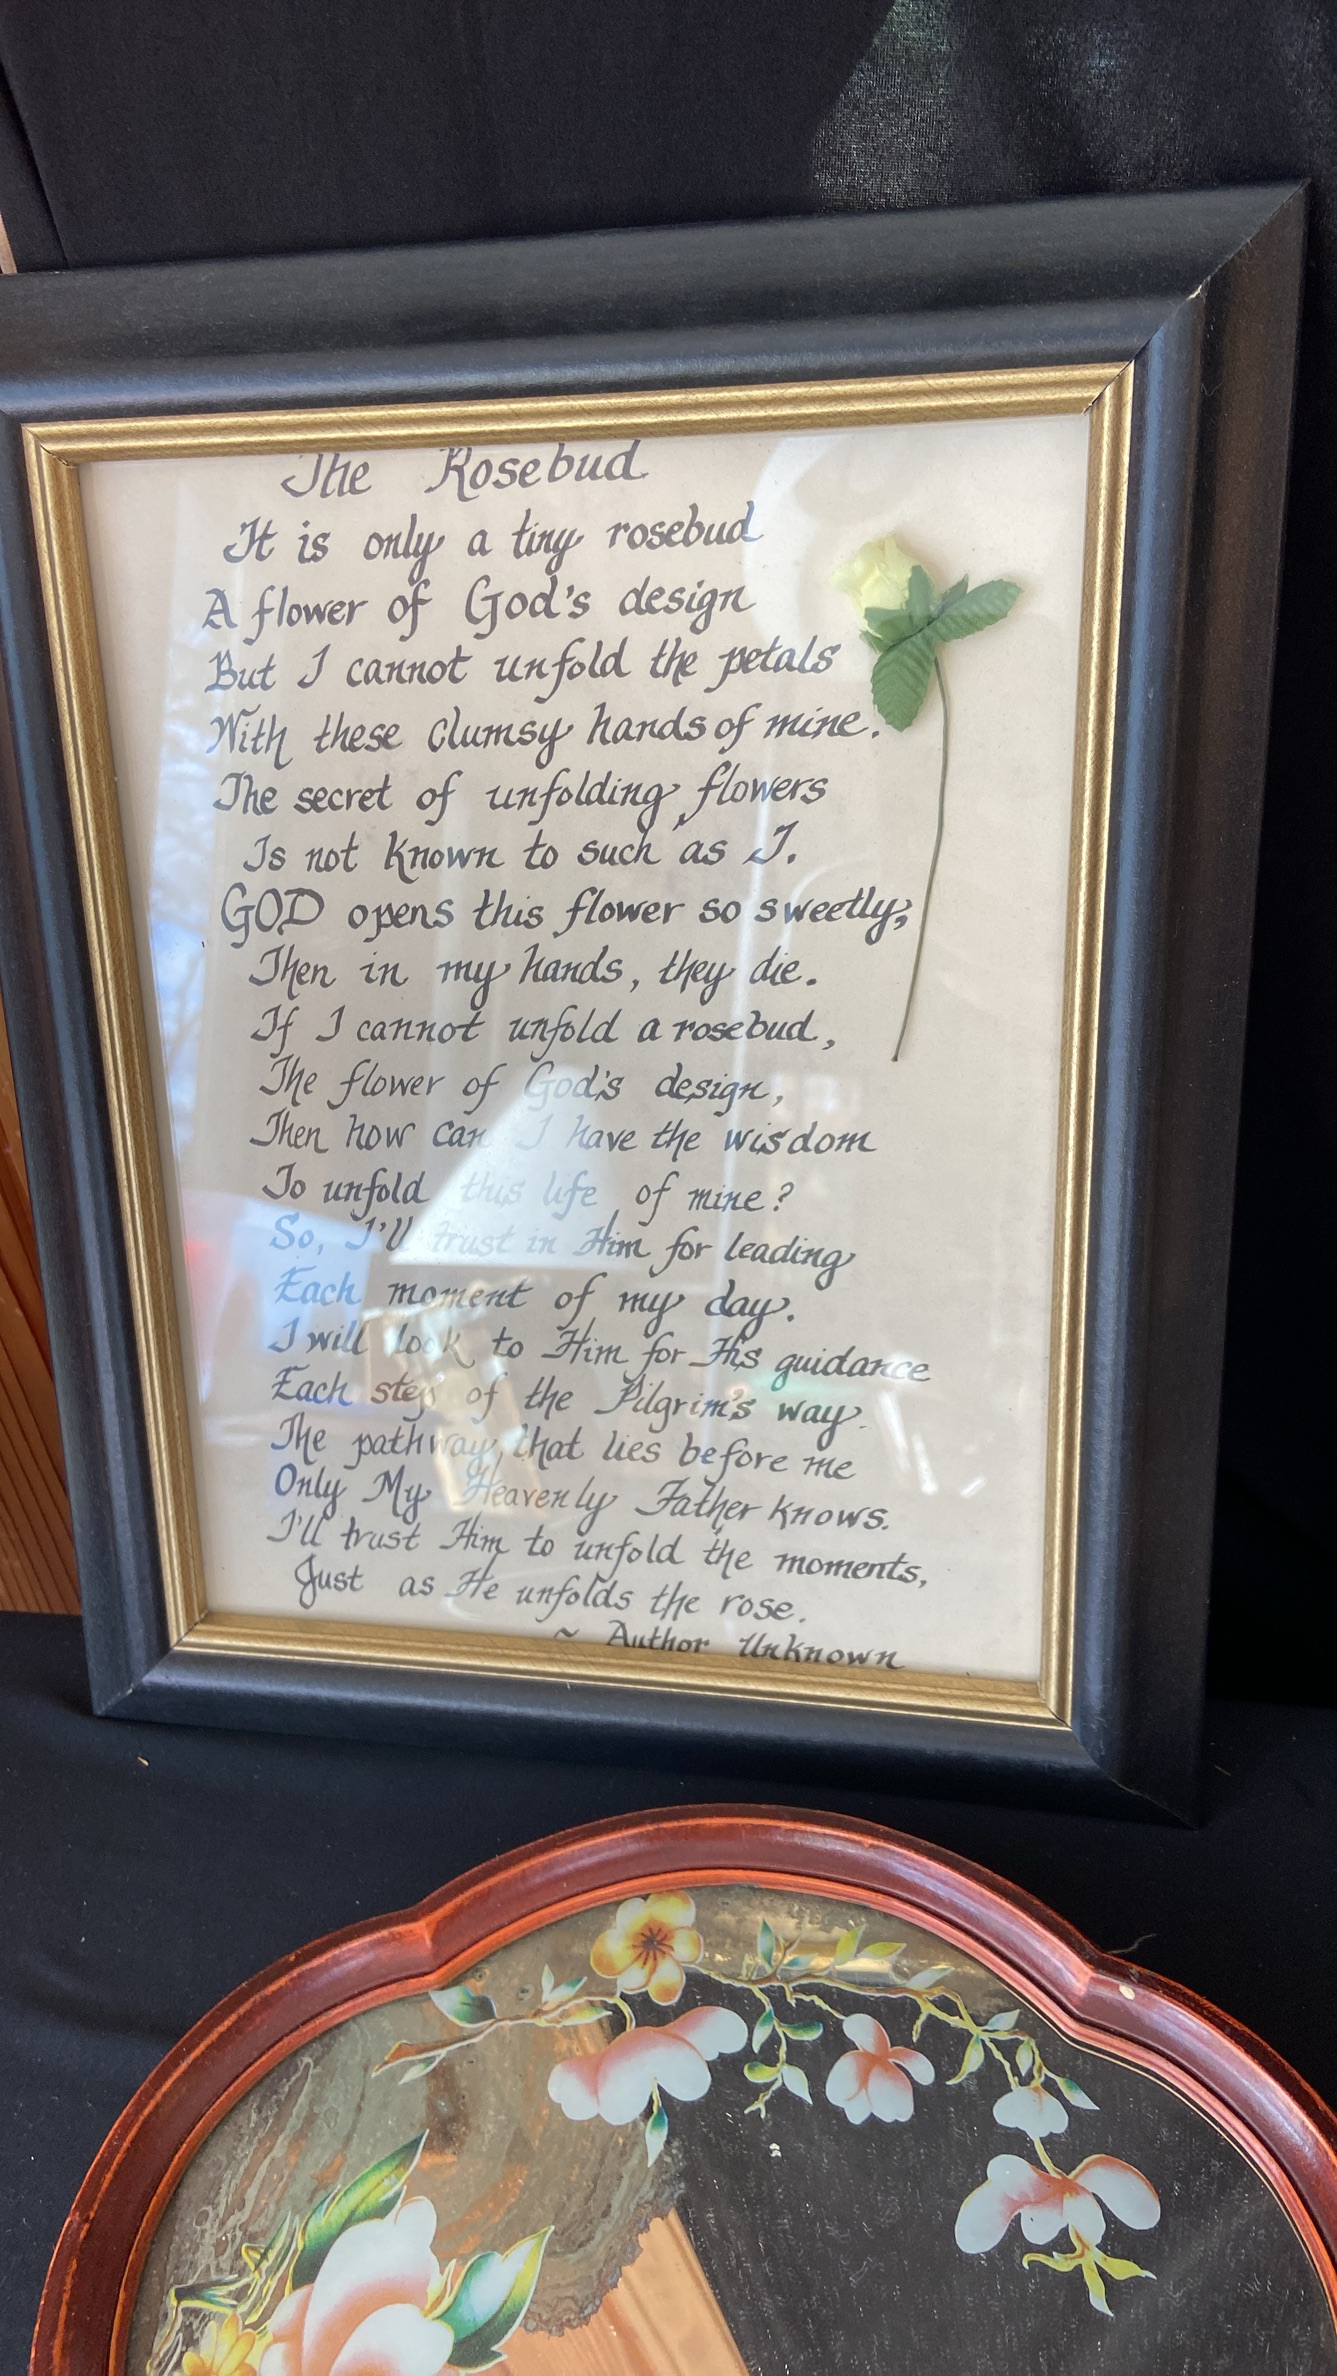 The Rosebud
It is only a tiny rosebud
A flower of God's design
But I cannot unfold the petals
With these clumsy hands of mine.
The secret of unfolding flowers
Is not known to such as I.
GOD opens this flower so sweetly,
Then in my hands, they die.
If I cannot unfold a rosebud,
The flower of God's design,
Then how can I have the wisdom
To unfold this life of mine?
So, I'll trust in Him for leading
Each moment of my day.
I will look to Him for His guidance
Each step of the Pilgrim's way.
The pathway that lies before me
Only My Heavenly Father knows.
I'll trust Him to unfold the moments,
Just as He unfolds the rose.
~ Author Unknown